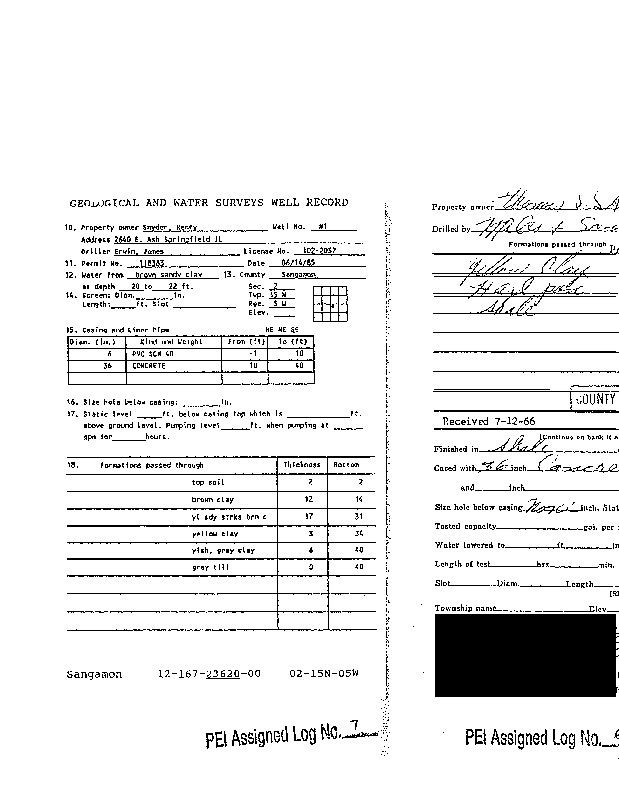 GEOLOGICAL AND WATER SURVEYS WELL RECORD
10. Property owner Snyder, Randy Well No. #1
Address 2640 E. Ash Springfield IL
Driller Erwin, James License No. 102-2057
11. Permit No. 118383 Date 06/14/85
12. Water from brown sandy clay 13. County Sangamon
at depth 20 to 22 ft. Sec. 2
14. Screen: Diam. in. Twp. 15 N
Length: ft. Slot Rge. 5 W
Elev.
15. Casing and Liner Pipe NE NE SE
Diam. (in.) Kind and Weight From (ft) To (ft)
6 PVC SCH 40 -1 10
36 CONCRETE 10 40
16. Size hole below casing: in.
17. Static level ft. below casing top which is ft.
above ground level. Pumping level ft. when pumping at
gpm for hours.
18. Formations passed through Thickness Bottom
top soil 2 2
brown clay 12 14
yl sdy strks brn c 17 31
yellow clay 3 34
ylsh, gray clay 6 40
gray till 0 40
Sangamon 12-167-23620-00 02-15N-05W
PEI Assigned Log No. 7
Property owner Thomas
Drilled by
Formations passed through
Yellow Clay
Hard pan
Shale
COUNTY
Received 7-12-66
(Continue on back if
Finished in Shale
Cased with 36 inch Concre
and inch
Size hole below casing inch. Stat
Tested capacity gal. per
Water lowered to ft. in
Length of test hrs. min.
Slot Diam. Length
Township name Elev.
PEI Assigned Log No.